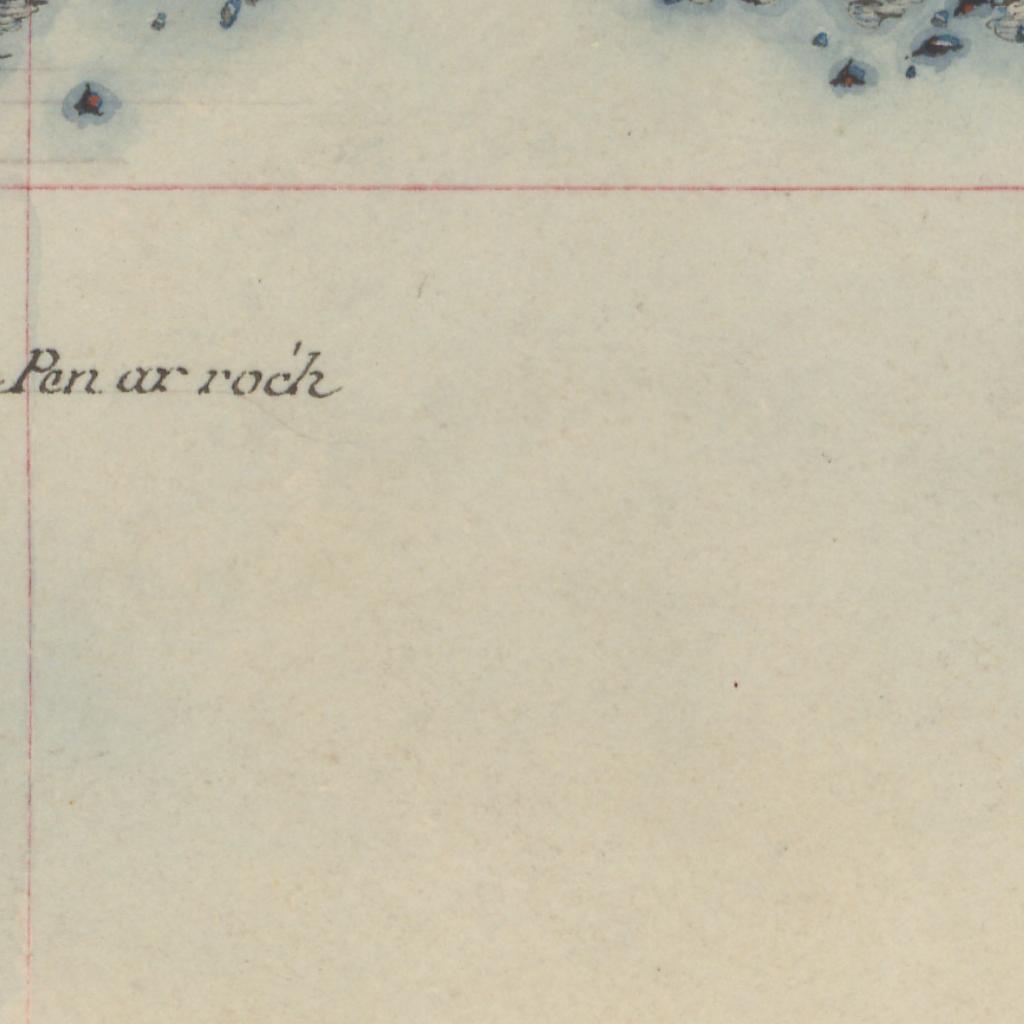 Pen ar roc'h